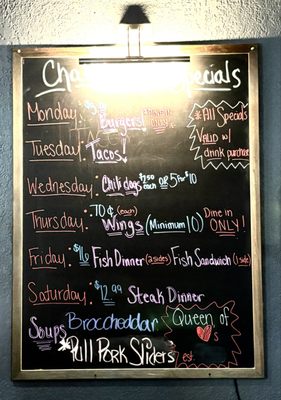 Specials
Monday: Burgers!
Tuesday: Tacos!
* All Specials
Valid w/
drink purchase
Wednesday: Chili dogs $2.50 each or 5 for $10
Thursday: .70¢ (each) Wings (Minimum 10) Dine in ONLY!
Friday: $16 Fish Dinner (2 sides) Fish Sandwich (1 side)
Saturday: $12.99 Steak Dinner
Soups Broccheddar
*Pull Pork Sliders
Queen of
♥s
est